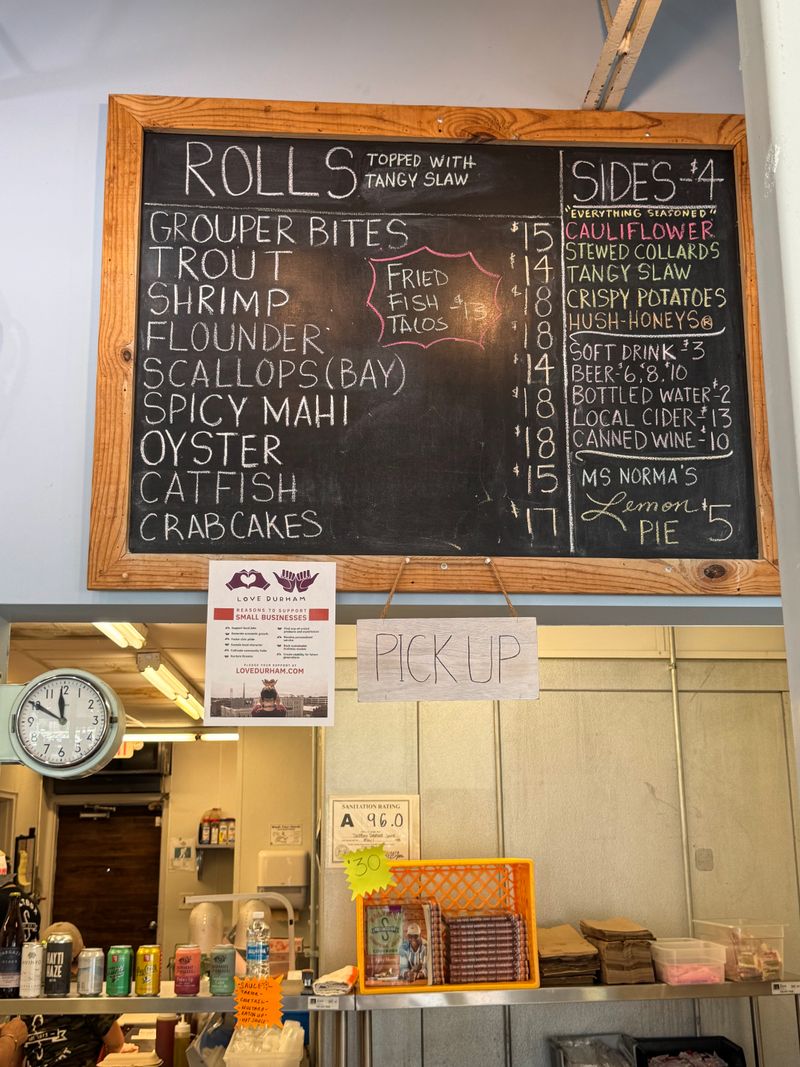 ROLLS TOPPED WITH
TANGY SLAW
GROUPER BITES $15
TROUT $14
SHRIMP $18
FLOUNDER $18
SCALLOPS (BAY) $14
SPICY MAHI $18
OYSTER $18
CATFISH $15
CRAB CAKES $17
FRIED
FISH -$13
TACOS
SIDES-$4
"EVERYTHING SEASONED"
CAULIFLOWER
STEWED COLLARDS
TANGY SLAW
CRISPY POTATOES
HUSH-HONEYS®
SOFT DRINK-$3
BEER-$6,$8,$10
BOTTLED WATER-$2
LOCAL CIDER-$13
CANNED WINE-$10
MS NORMA'S
Lemon $5
PIE
LOVE DURHAM
REASONS TO SUPPORT
SMALL BUSINESSES
PLEDGE YOUR SUPPORT AT
LOVEDURHAM.COM
PICK UP
12
1
2
3
4
5
6
7
8
9
10
11
SANITATION RATING
A 96.0
$30
HAZE